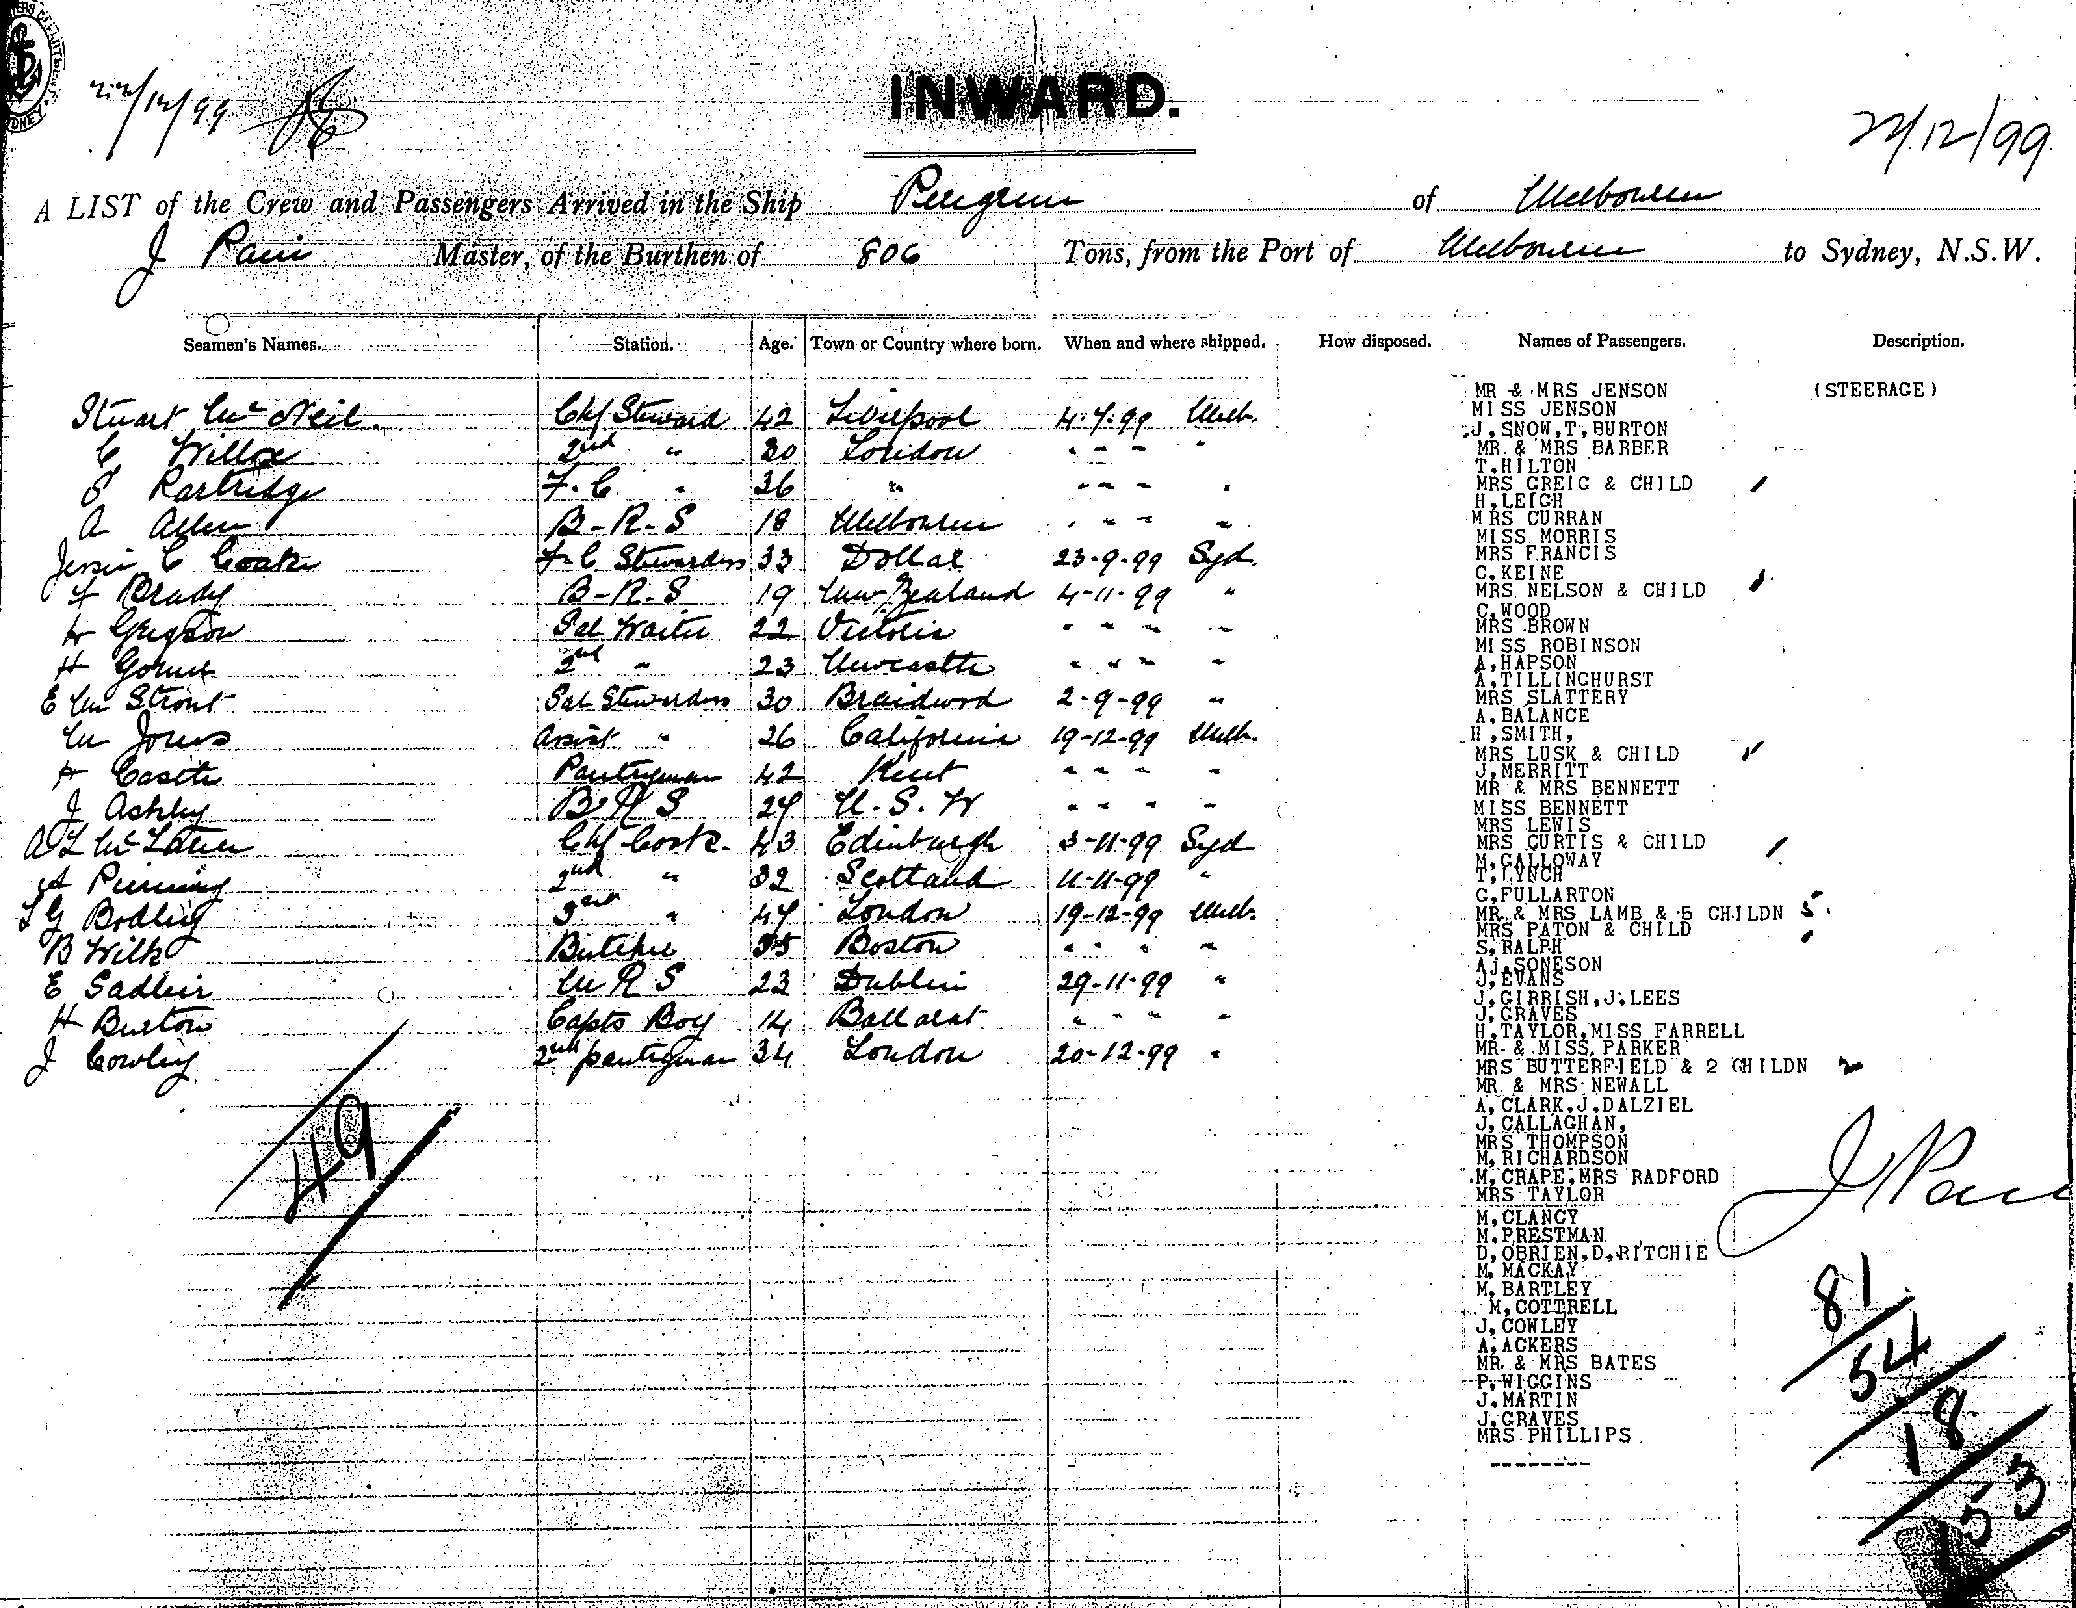 22/12/99
INWARD.
22/12/99
A LIST of the Crew and Passengers Arrived in the Ship Peregrine of Melbourne
J Pain Master, of the Burthen of 806 Tons, from the Port of Melbourne to Sydney, N.S.W.
Seamen's Names. Station. Age. Town or Country where born. When and where shipped. How disposed. Names of Passengers. Description.
Stuart McNeil. Chf Steward 42 Liverpool 4.7.99 Melb.
C Willox 2nd " 30 London " " " "
S Partridge F.C " 36 " " " " "
A Allen B-R-S 18 Melbourne " " " "
Jessie C Cook F.C. Stewardess 33 Dollar 23-9-99 Syd.
F Brady B-R-S 19 New Zealand 4-11-99 "
H Gregson Sal Waiter 22 Victoria " " " "
H 2nd " 23 Newcastle " " " "
E M Strout Sal Stewardess 30 Braidwood 2-9-99 "
M Jones Assist " 26 California 19-12-99 Melb.
H Castle Pantryman 42 Kent " " " "
J Ashley B R S 27 N.S.W " " " "
A L Chf Cook. 43 Edinburgh 3-11-99 Syd
2nd " 32 Scotland 11-11-99 "
S G Bodley 3rd " 47 London 19-12-99 Melb.
B Wilks Butcher 35 Boston " " " "
E Sadleir M R S 23 Dublin 29-11-99 "
H Burton Capts Boy 14 Ballarat " " " "
J Cowley 2nd pantryman 34 London 20-12-99 "
49
MR & MRS JENSON (STEERAGE)
MISS JENSON
J,SNOW,T,BURTON
MR & MRS BARBER
T.HILTON
MRS GREIG & CHILD
H,LEIGH
MRS CURRAN
MISS MORRIS
MRS FRANCIS
C.KEINE
MRS NELSON & CHILD
C,WOOD
MRS BROWN
MISS ROBINSON
A,HAPSON
A,TILLINGHURST
MRS SLATTERY
A,BALANCE
H,SMITH,
MRS LUSK & CHILD
J,MERRITT
MR & MRS BENNETT
MISS BENNETT
MRS LEWIS
MRS CURTIS & CHILD
M,GALLOWAY
T,LYNCH
G,FULLARTON
MR & MRS LAMB & 5 CHILDN 5.
MRS PATON & CHILD
S,RALPH
AJ,SONESON
J,EVANS
J,GIRRISH,J,LEES
J,GRAVES
H,TAYLOR,MISS FARRELL
MR & MISS PARKER
MRS BUTTERFIELD & 2 CHILDN 2
MR & MRS NEWALL
A,CLARK,J,DALZIEL
J,CALLAGHAN,
MRS THOMPSON
M,RICHARDSON
M,CRAPE,MRS RADFORD
MRS TAYLOR
M,CLANCY
M,PRESTMAN
D,OBRIEN,D,RITCHIE
M, MACKAY
M, BARTLEY
M,COTTRELL
J,COWLEY
A,ACKERS
MR & MRS BATES
P,WIGGINS
J.MARTIN
J,GRAVES
MRS PHILLIPS
--------
J Pain
81
54
18
153